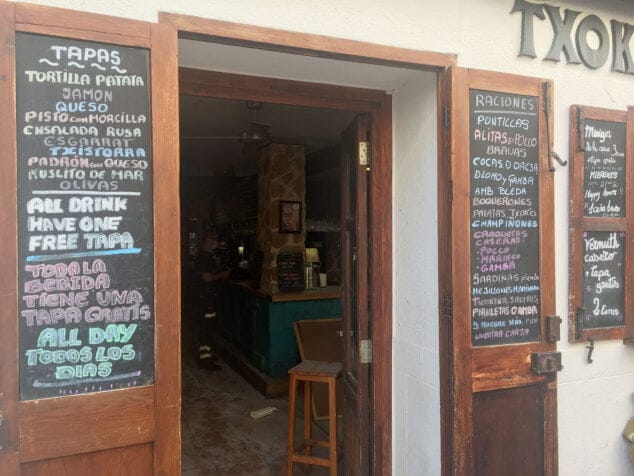 TXOK
TAPAS
TORTILLA PATATA
JAMON
QUESO
PISTO CON MORCILLA
ENSALADA RUSA
ESGARRAT
TXISTORRA
PADRÓN CON QUESO
MUSLITO DE MAR
OLIVAS
ALL DRINK
HAVE ONE
FREE TAPA
TODA LA
BEBIDA
TIENE UNA
TAPA GRATIS
ALL DAY
TODOS LOS
DIAS
RACIONES
PUNTILLAS
ALITAS D POLLO
BRAVAS
COCAS D DACSA
D LOMO Y GAMBA
AMB BLEDA
BOQUERONES
PATATAS TXOKO
CHAMPIÑONES
CROQUETAS
CASERAS
- POLLO
- MARISCO
- GAMBA
SARDINAS
MEJILLONES MARINERA
PIRULETAS D GAMBA
Y MUCHAS MÁS, PIDA
NUESTRA CARTA
gratis
Happy hours
Vermuth
casero
+ Tapa
gratis
2 Euros